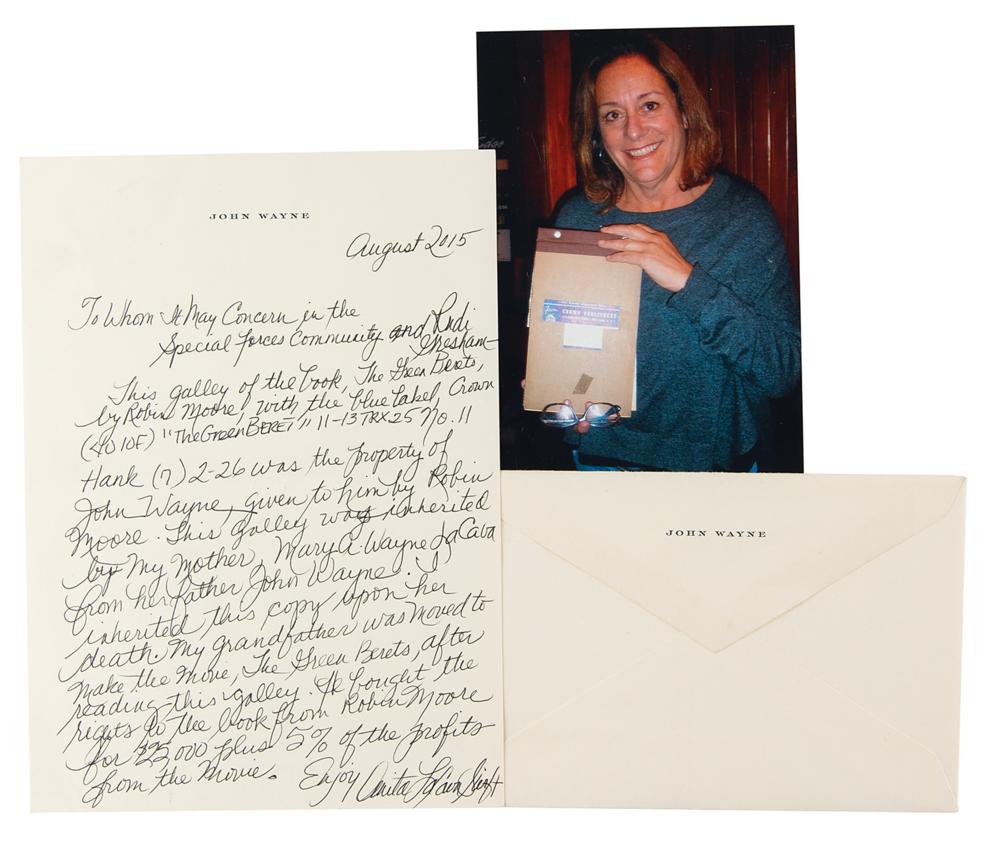 JOHN WAYNE
August 2015
To Whom It May Concern in the
Special Forces Community and Rudi
Gresham-
This galley of the book, The Green Berets,
by Robin Moore, with the blue label, Crown
(4010F) "The Green BERET" 11-13 TRX 25 No. 11
Hank (7) 2-26 was the property of
John Wayne, given to him by Robin
Moore. This galley was inherited
by My Mother, Mary A. Wayne LaCava
from her father John Wayne. I
inherited this copy upon her
death. My grandfather was moved to
make the movie, The Green Berets, after
reading this galley. He bought the
rights to the book from Robin Moore
for $25,000 plus 5% of the profits
from the Movie.
Enjoy Anita
CROWN PUBLISHERS
JOHN WAYNE